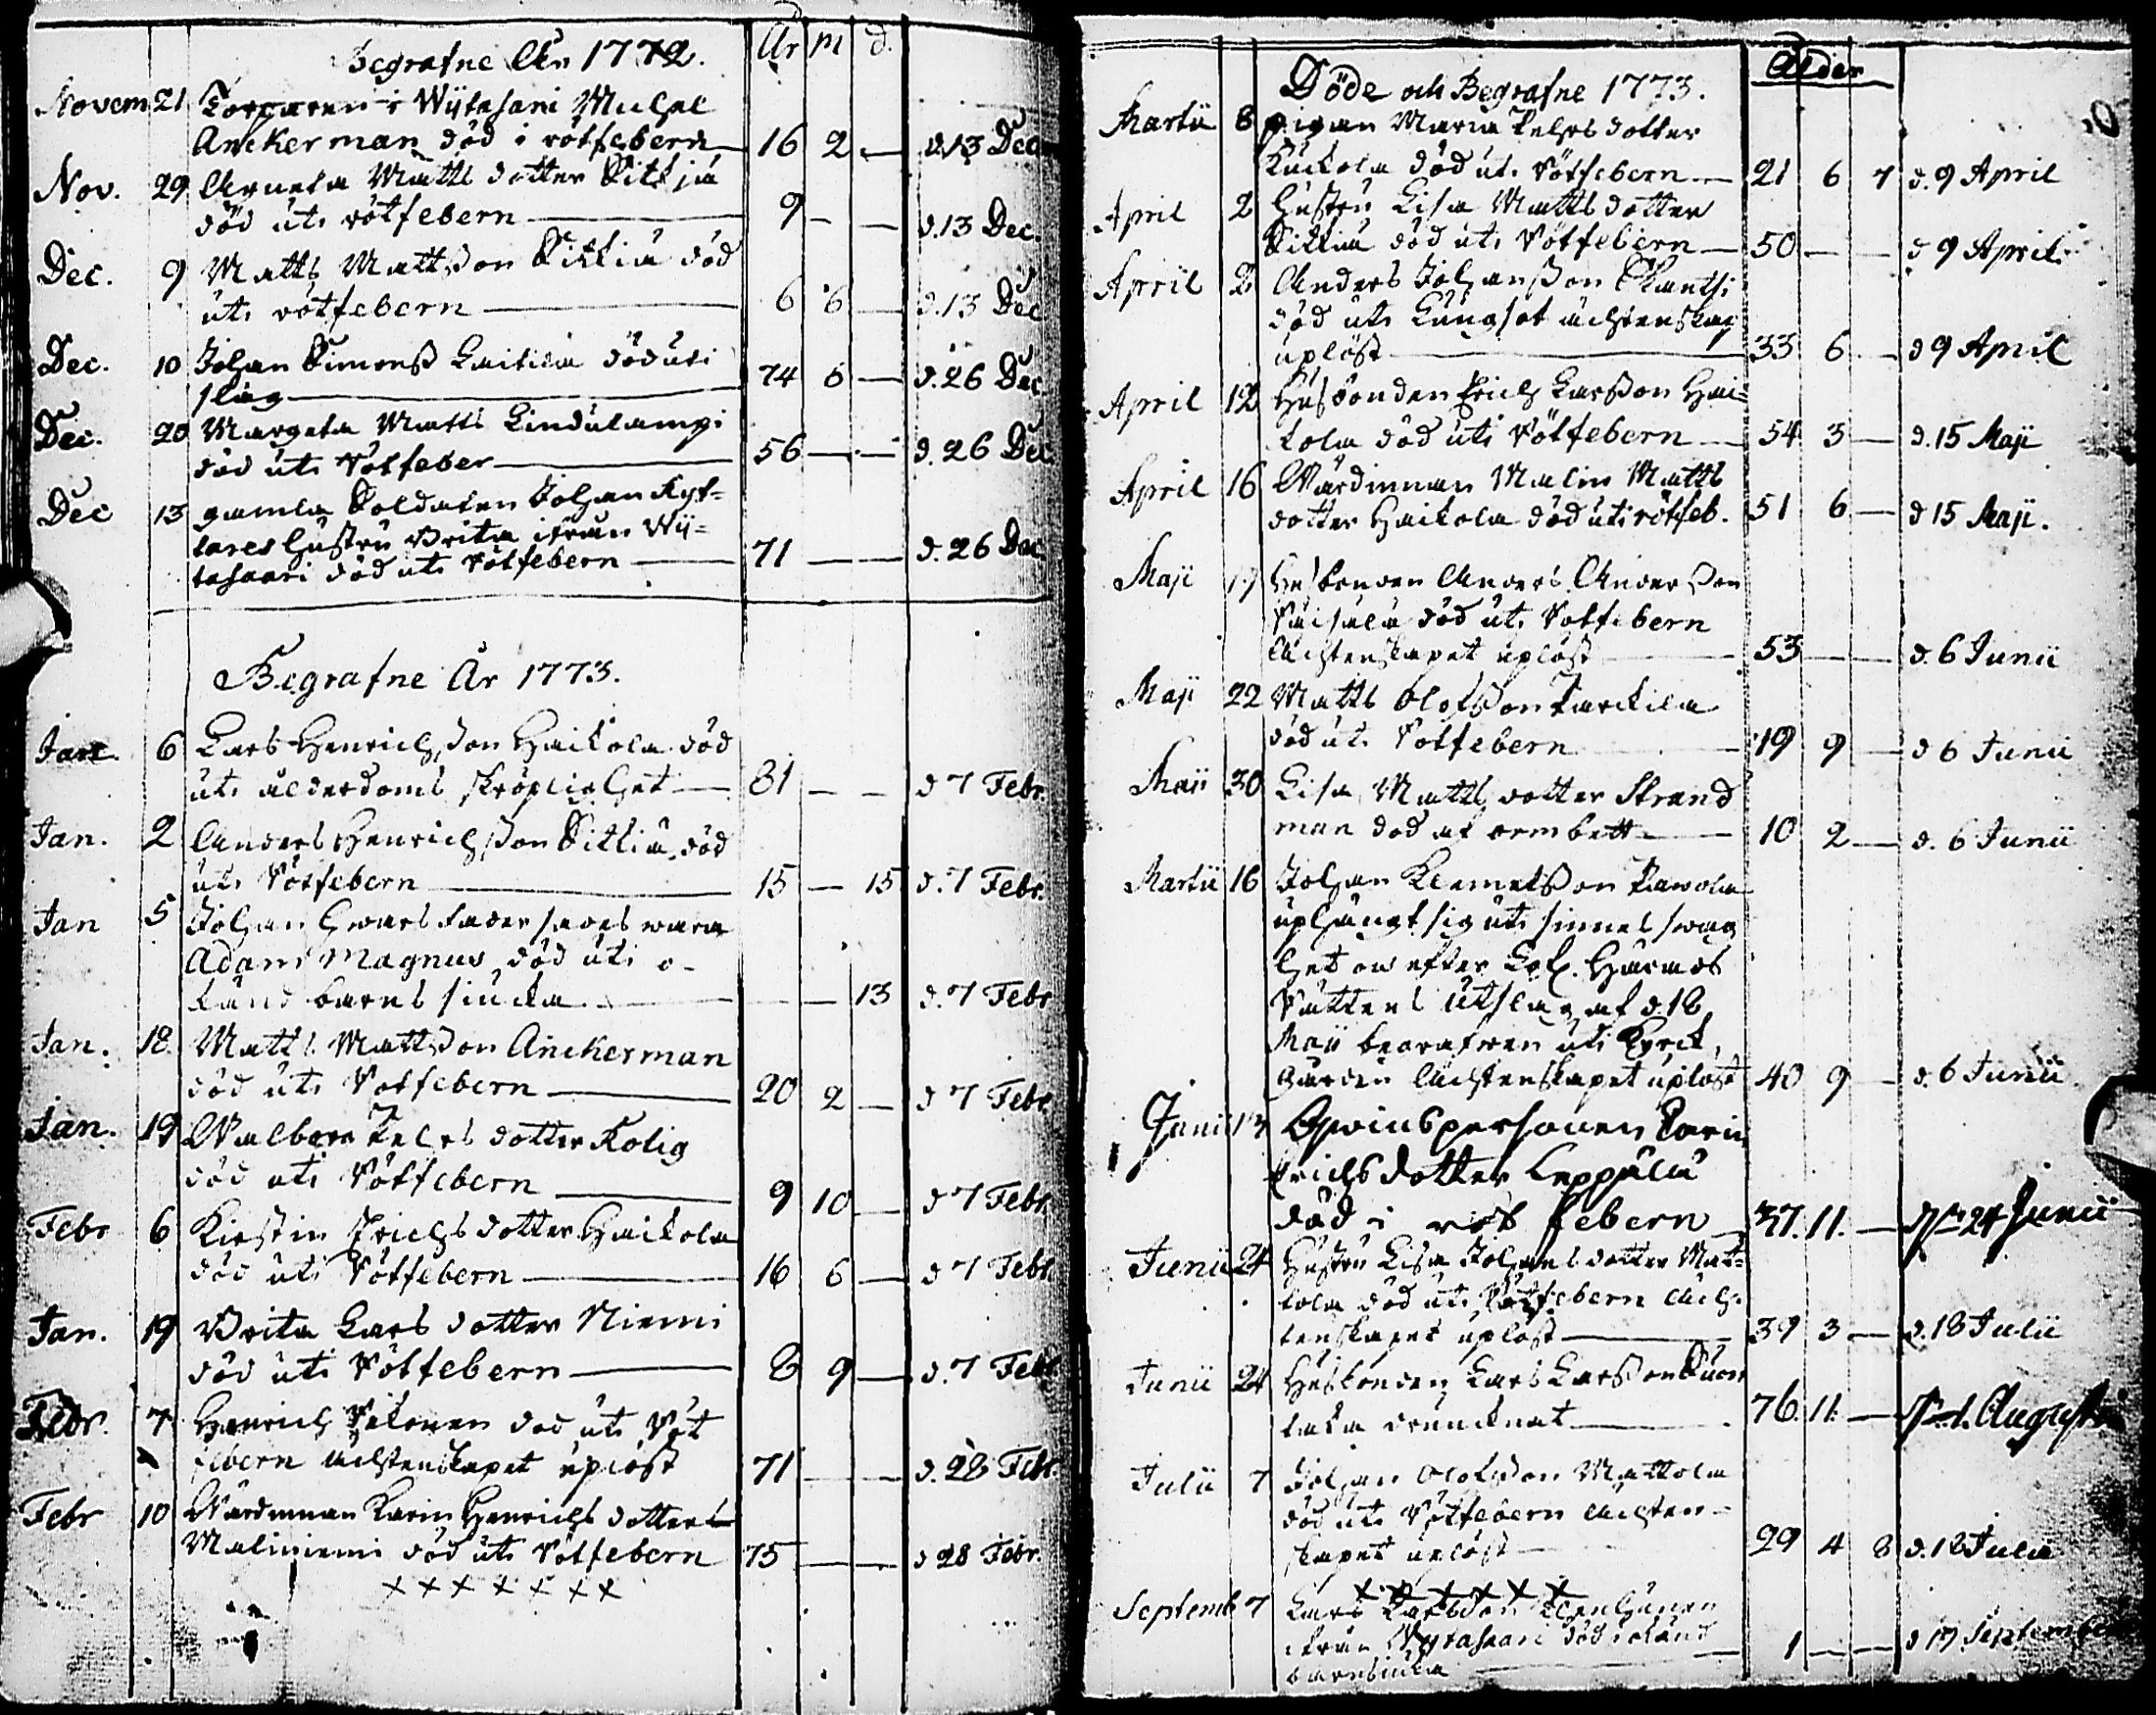 Begrafne År 1772. År M d.
Novem 21 Torparen i Wijtasari Michel
Anckerman död i rötfebern 16 2 — d. 13 Dec
Nov. 29 Agneta Matts dotter Sikkiä
död uti rötfebern 9 — — d. 13 Dec.
Dec. 9 Matts Mattsson Sikkiä död
uti rötfebern 6 6 — d. 13 Dec
Dec. 10 Johan Simonss Laitila död uti
slag 74 6 — d. 26 Dec
Dec. 20 Margeta Matts Lindulampi
död uti Rötfeber 56 — — d. 26 Dec.
Dec 13 gamla Soldaten Johan Ryt-
tares hustru Brita ifrån Wij-
tasaari död uti Rötfebern 71 — — d. 26 Dec
Begrafne År 1773.
Jan. 6 Lars Henrichsson Haikola död
uti ålderdoms skröplighet 81 — — d 7 Febr.
Jan. 2 Anders Henrichsson Sikkiä död
uti Rötfebern 15 — 15 d. 7 Febr.
Jan 5 Johan hwars fader säges wara
Adam Magnus död uti o-
känd barnsiucka — — 13 d. 7 Febr
Jan. 18. Matts Mattsson Anckerman
död uti Rötfebern 20 2 — d 7 Febr
Jan. 19 Walborg Pehrs dotter Kolig
död uti Rötfebern 9 10 — d 7 Febr
Febr 6 Kirstin Erichs dotter Haikola
död uti Rötfebern 16 6 — d 7 Febr
Jan. 19 Brita Lars dotter Niemi
död uti Rötfebern 8 9 — d. 7 Feb
Febr. 7 Henrich död uti Röt
febern ächtenskapet uplöst 71 — — d. 28 Febr.
Febr 10 Wärdinnan Karin Henrichs dotter
Maliniemi död uti Rötfebern 75 — — d 28 Febr.
× × × × × × ×
Döde och Begrafne 1773. Ålder
Martii 8 pigan Maria Pehrs dotter
Kuckola död uti Rötfebern 21 6 7 d. 9 April
April 2 Hustru Lisa Matts dotter
Sikkiä död uti Rötfebern 50 — — d 9 April.
April 2 Anders Johansson Skantsi
död uti Lungsot ächtenskap
uplöst 33 6 — d 9 April
April 12 Husbonden Erich Larsson Hai-
kola död uti Rötfebern 54 3 — d. 15 Maji
April 16 Wärdinnan Malin Matts
dotter Haikola död uti rötfeb. 51 6 — d 15 Maji.
Maji 17 Husbonden Anders Andersson
Räisälä död uti Rötfebern
Ächtenskapet uplöst 53 — — d. 6 Junii
Maji 22 Matts Olofsson Parckila
död uti Rötfebern 19 9 — d 6 Junii
Maji 30 Lisa Matts dotter Strand
man död af ormbett 10 2 — d. 6 Junii
Martii 16 Johan Klemetsson Pawola
uphängt sig uti sinnes swag
het och efter Lofl. Härads
Rättens utslag af d. 18
Maji begrafven uti Kyrck,
gården Ächtenskapet uplöst 40 9 — d. 6 Junii
Junii 13 Karin
Erichsdotter Leppälä
död i röt febern 37. 11. — d 24 Junii
Junii 24 Hustru Lisa Johans dotter Mat-
tola död uti Rötfebern ächt
tenskapet uplöst 39 3 — d. 18 Julii
Junii 24 Husbonden Lars Larsson Suon
taka druncknat 76. 11. — d. 1. Augusti
Julii 7 Johan Olofsson Mattola
död uti Rötfebern ächten-
skapet uplöst 29 4 8 d. 18 Julii
× × × × × ×
Septemb 7 Lars Larsson
ifrån Wytasaari död i okänd
barnsiucka 1 — — d 19 September